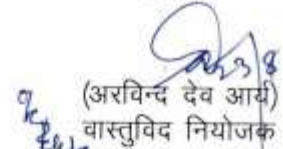 (अरविन्द देव आर्य)
वास्तुविद नियोजक